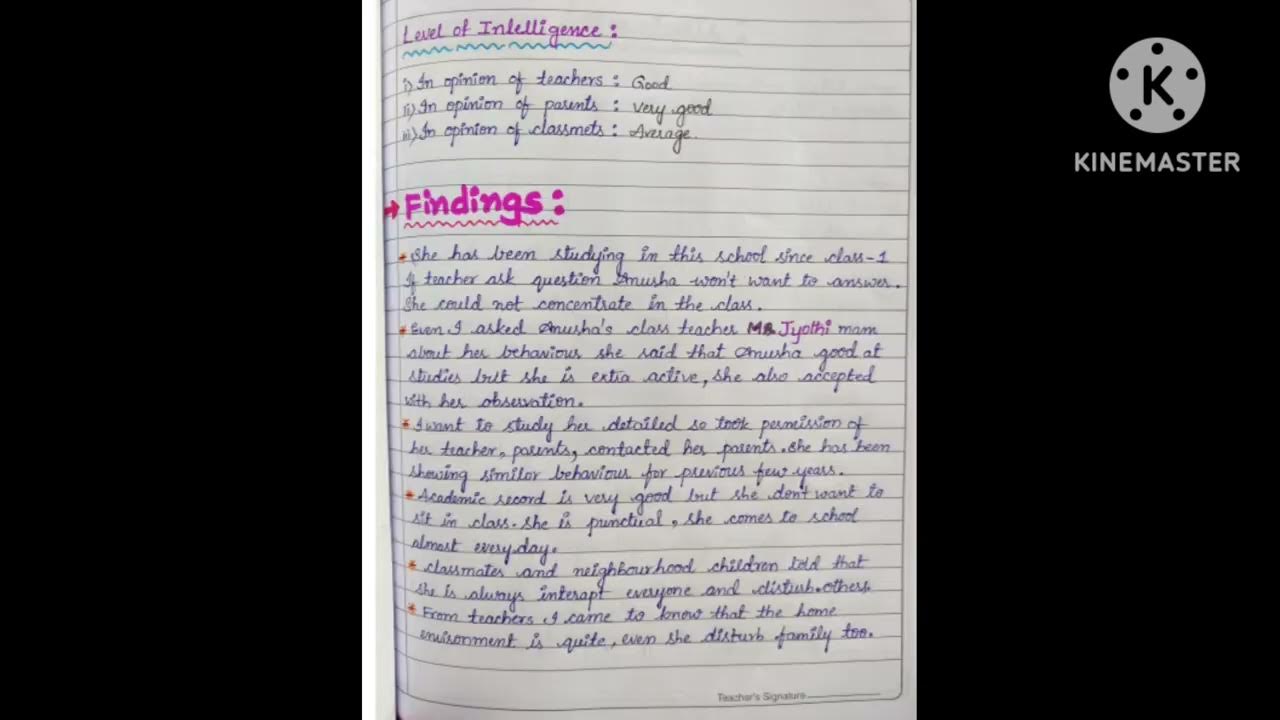 Level of Intelligence :
i) In opinion of teachers : Good
ii) In opinion of parents : Very good
iii) In opinion of classmets : Average.
Findings :
She has been studying in this school since class-1
If teacher ask question Anusha won't want to answer.
She could not concentrate in the class.
Even I asked Anusha's class teacher Jyothi mam
about her behaviour she said that Anusha good at
studies but she is extra active, she also accepted
with her observation.
I want to study her detailed so took permission of
her teacher, parents, contacted her parents. She has been
showing similar behaviour for previous few years.
Academic record is very good but she don't want to
sit in class. She is punctual, she comes to school
almost everyday.
classmates and neighbourhood children told that
she is always interapt everyone and disturb.others.
From teachers I came to know that the home
environment is quite, even she disturb family too.
Teacher's Signature
K
KINEMASTER